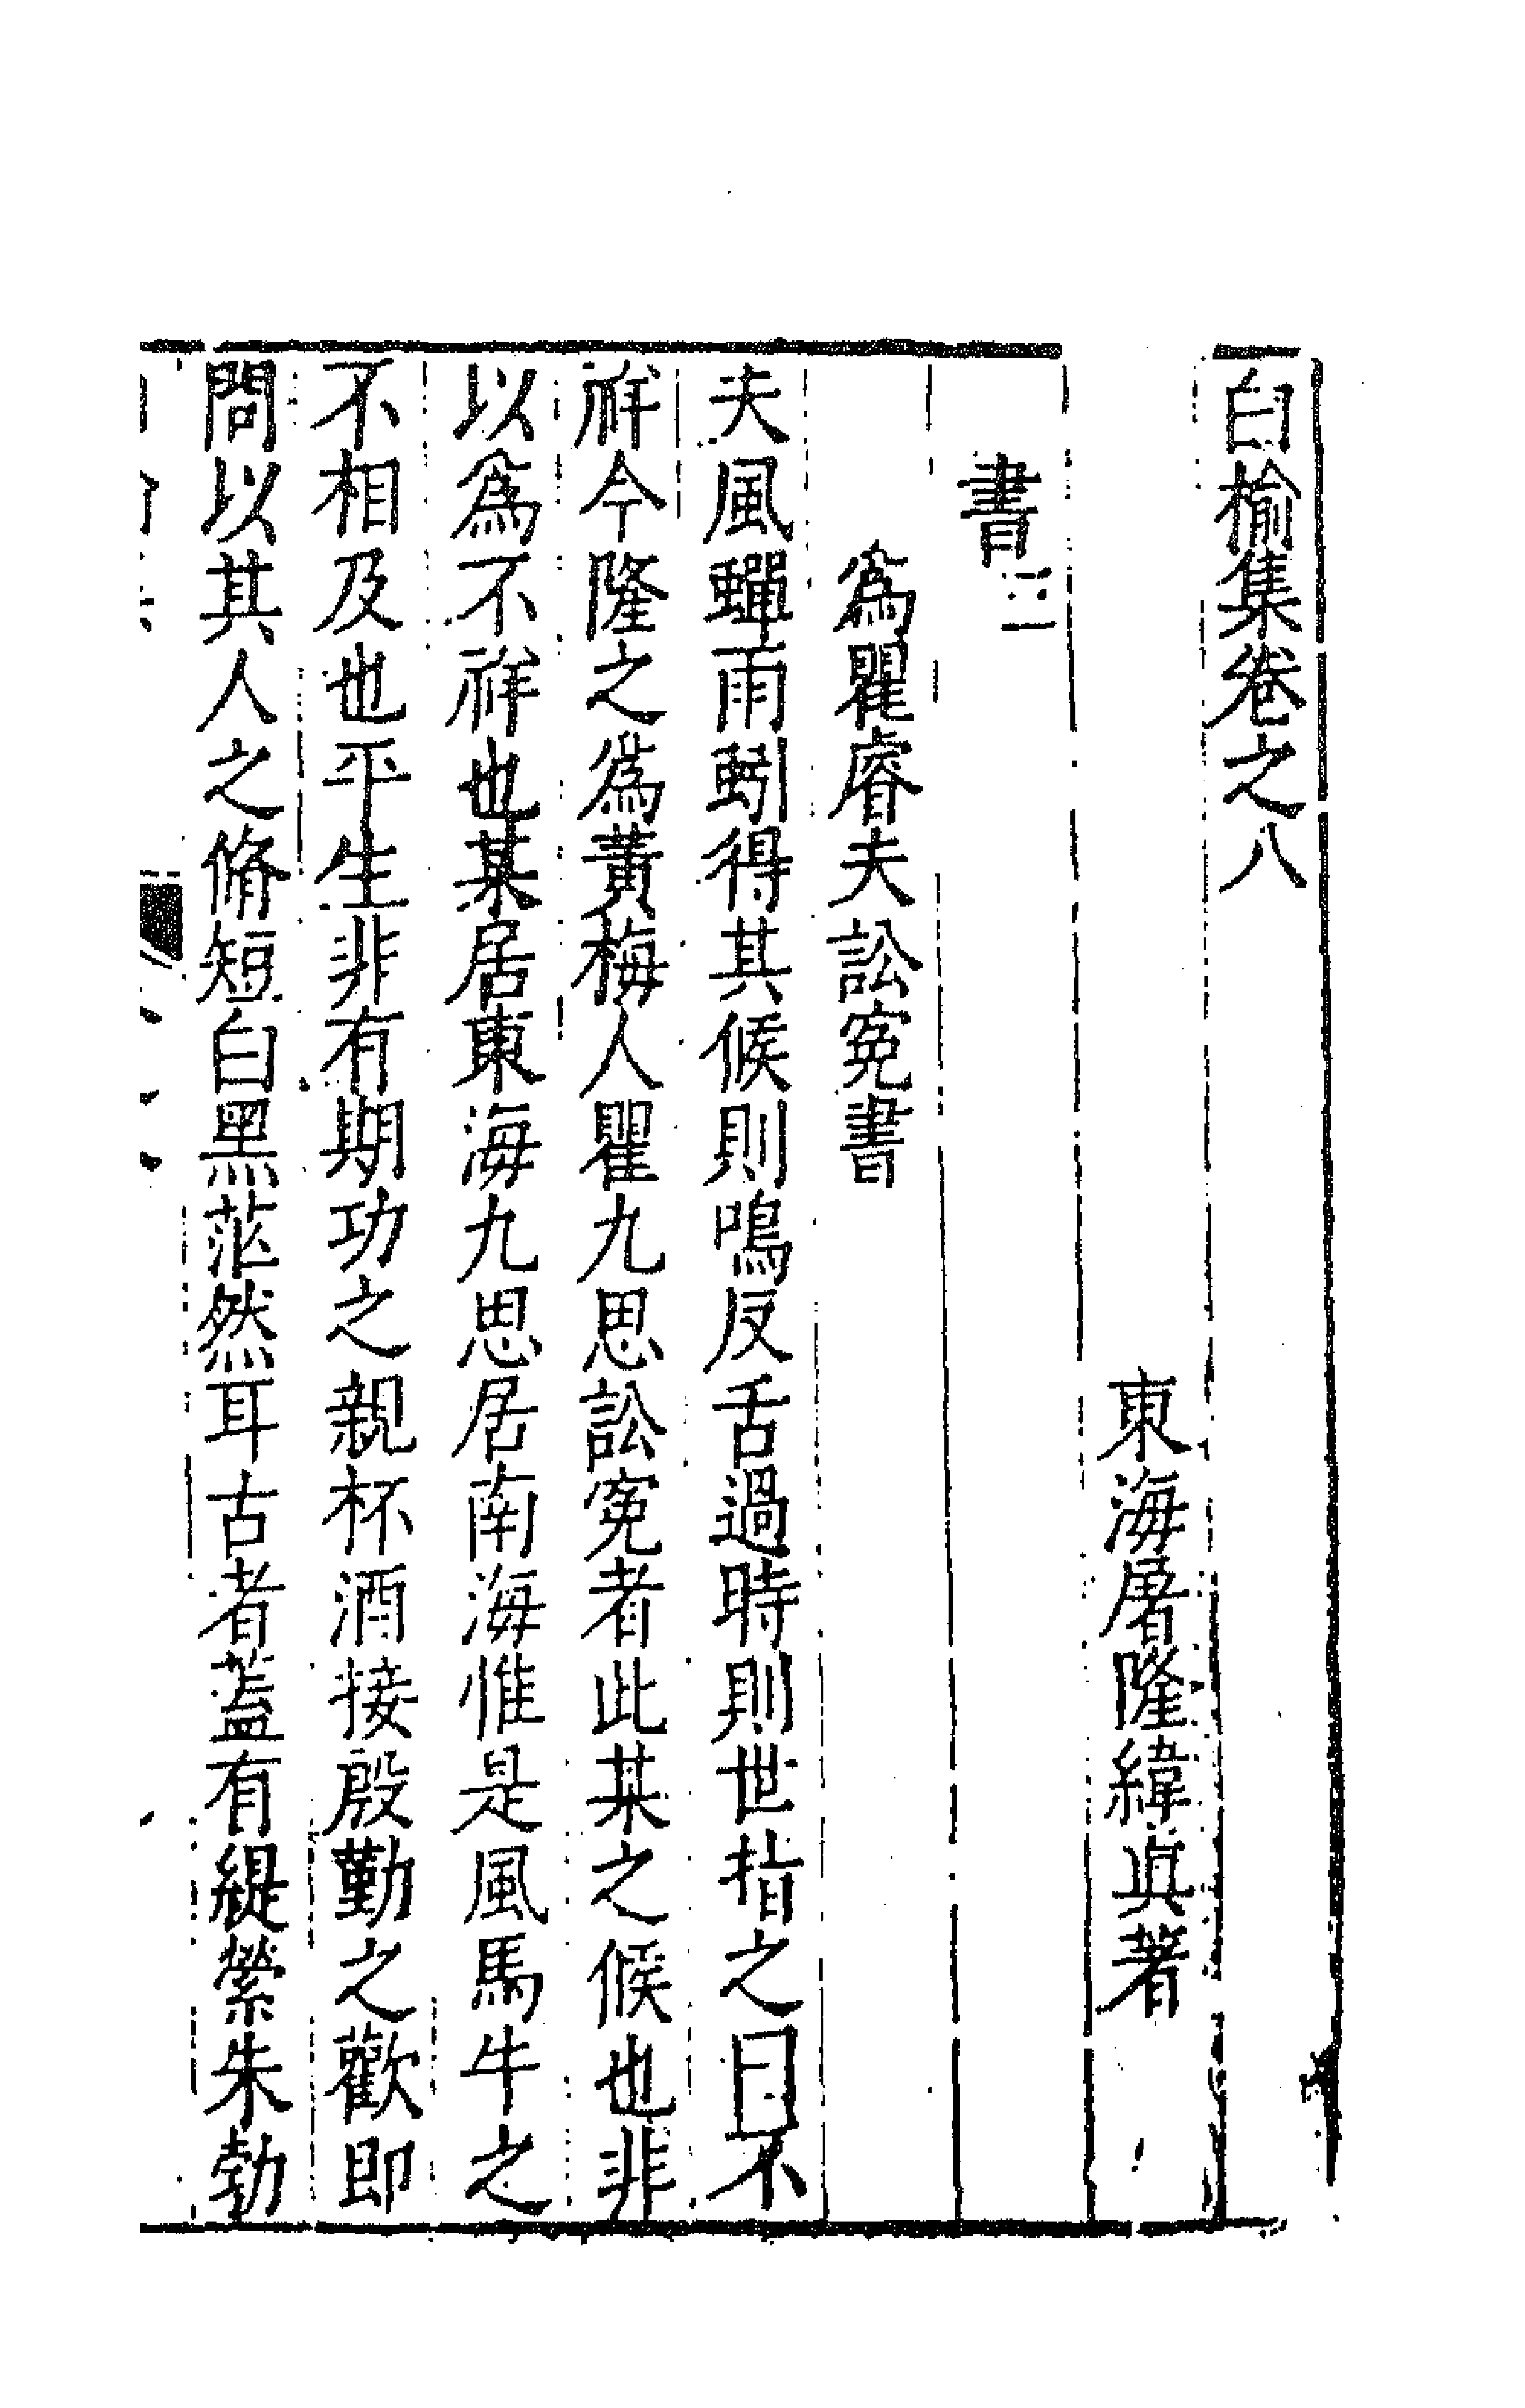 白榆集卷之八
東海屠隆緯眞著
書三
爲瞿睿夫訟寃書
夫風蟬雨蚓得其候則鳴反舌過時則世指之曰不
祥今隆之爲黃梅人瞿九思訟寃者此某之候也非
以爲不祥也某居東海九思居南海惟是風馬牛之
不相及也平生非有期功之親杯酒接殷勤之歡即
問以其人之脩短白黑茫然耳古者蓋有緹縈朱勃